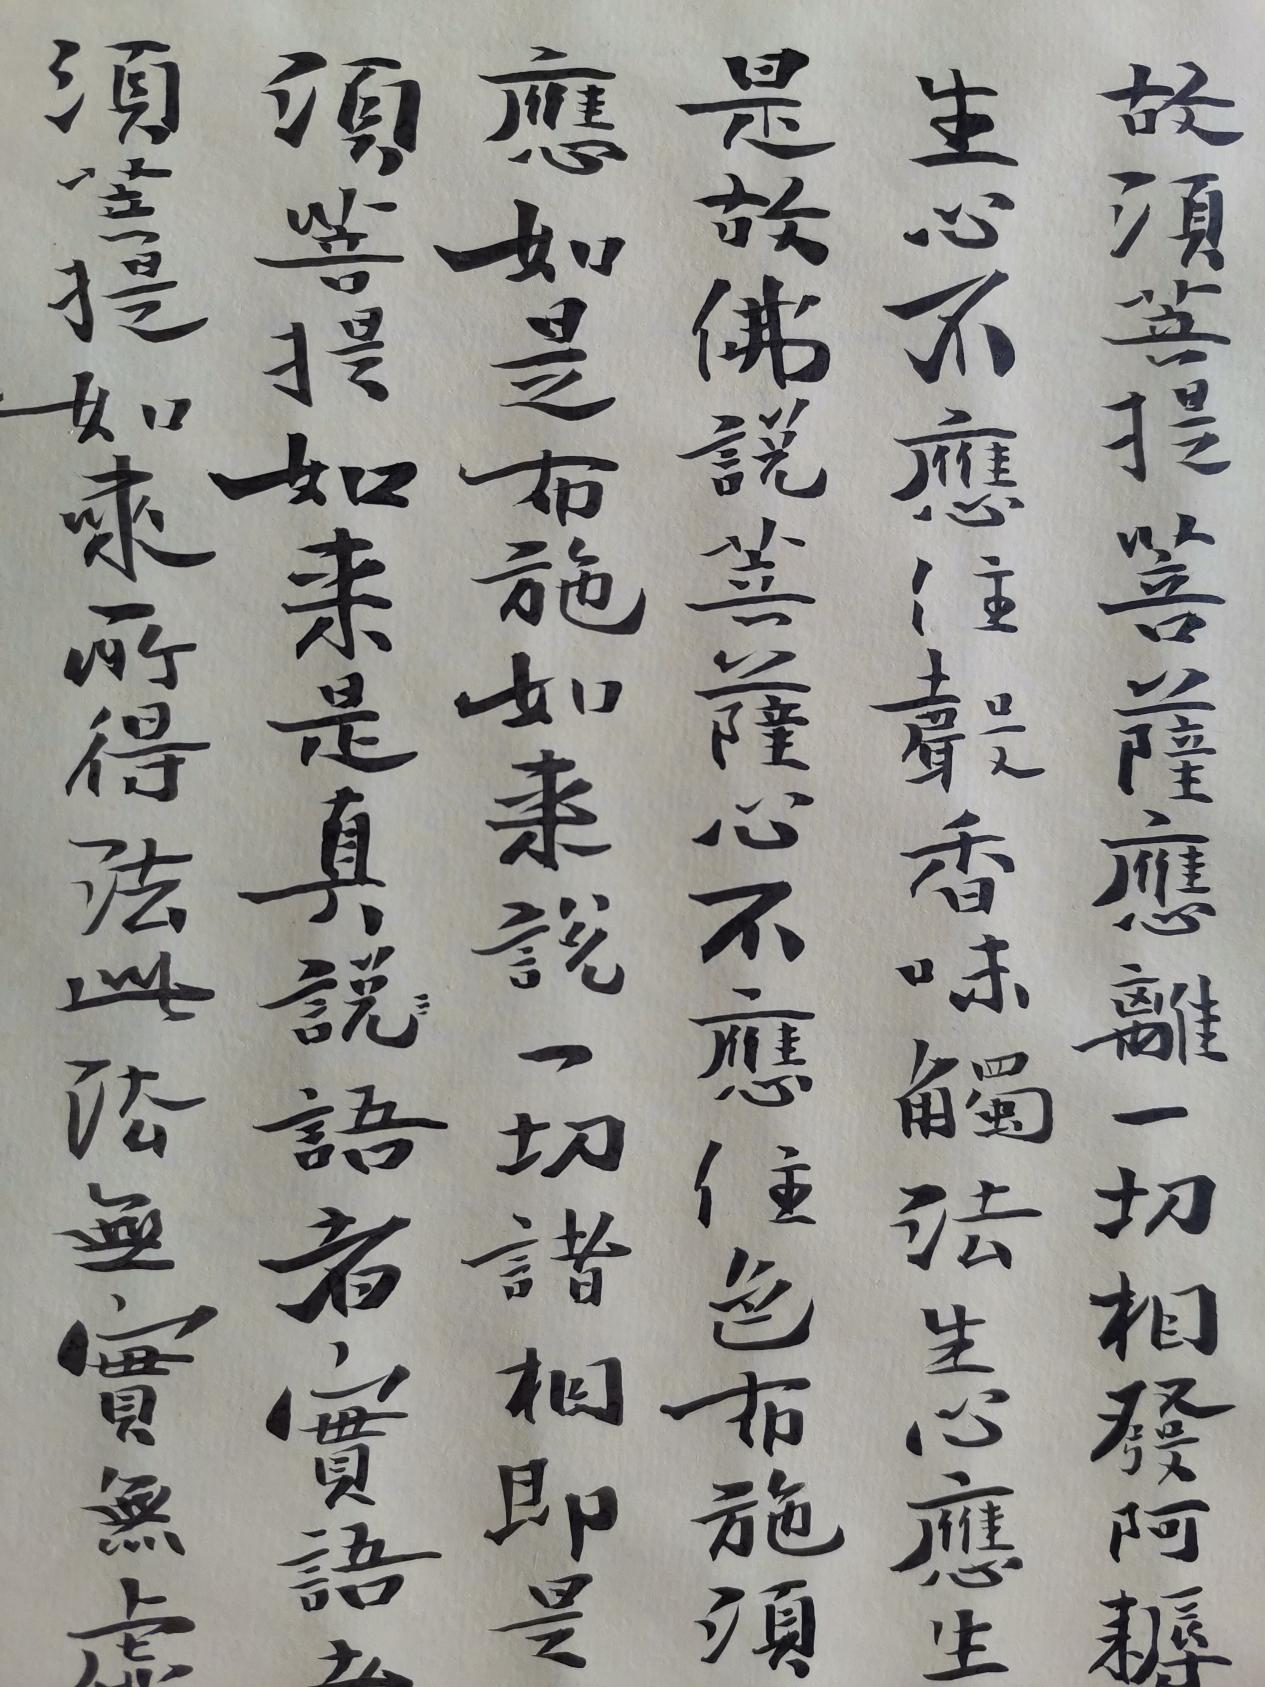 故須菩提菩薩應離一切相發阿耨
生心不應住聲香味觸法生心應生
是故佛說菩薩心不應住色布施須
應如是布施如来說一切諸相即是
須菩提如来是真說語者實語者
須菩提如來所得法此法無實無虛